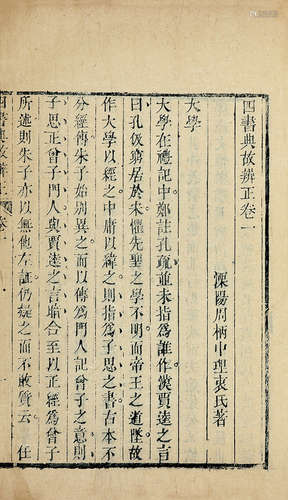 四書典故辨正卷一
溧陽周柄中理衷氏著
大學
大學在禮記中鄭註孔疏並未指為誰作漢賈逵之言
曰孔伋窮居於宋懼先聖之學不明而帝王之道墜故
作大學以經之中庸以緯之則指為子思之書古本不
分經傳朱子始別異之而以傳為門人記曾子之意則
子思正曾子門人與賈逵之言暗合至以正經為曾子
所述則朱子亦以無他左証仍疑之而不敢質云 任
四書典故辨正 卷一